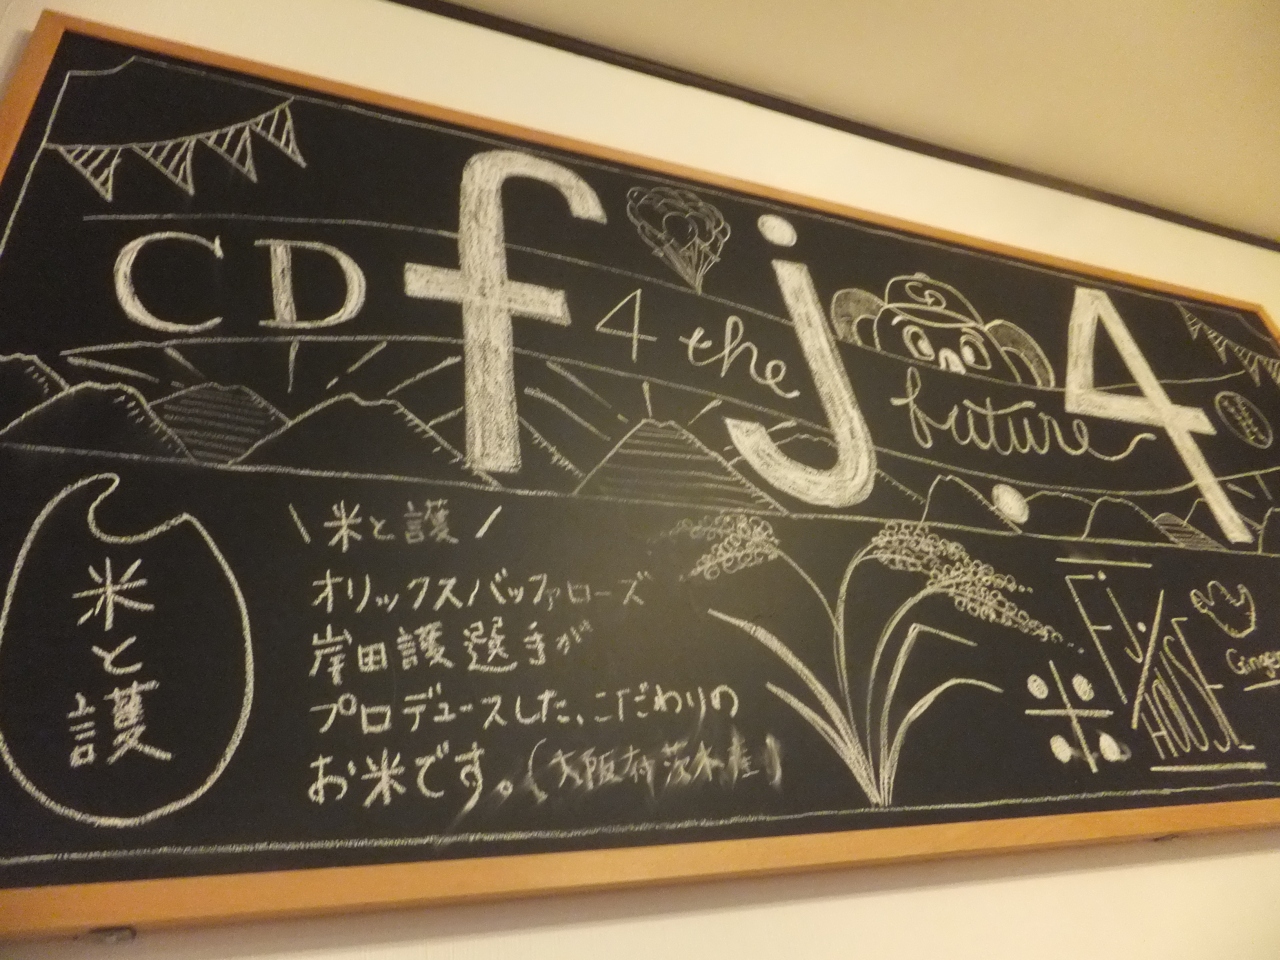 CD fj 4
4 the future
米と護
\米と護/
オリックスバッファローズ
岸田護選手が
プロデュースした、こだわりの
お米です。(大阪府茨木産)
Fj
HOUSE
Ginger